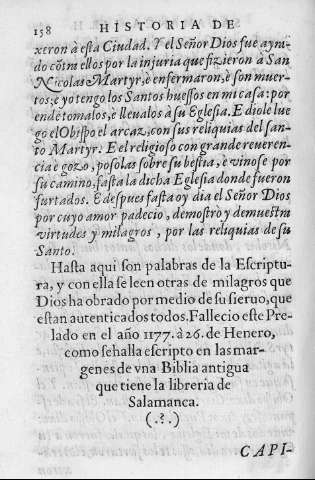 158 HISTORIA DE
xeron à esta Ciudad. Y el Señor Dios fue ayra-
do cõtra ellos por la injuria que fizieron à San
Nicolas Martyr, è enfermaron, è son muer-
tos; è yo tengo los Santos huessos en mi casa: por
ende tomalos, è lleualos à su Eglesia. E diole lue
go el Obispo el arcaz, con sus reliquias del san-
to Martyr. E el religioso con grande reueren-
cia e gozo, posolas sobre su bestia, e vinose por
su camino, fasta la dicha Eglesia donde fueron
furtados. E despues fasta oy dia el Señor Dios
por cuyo amor padecio, demostro y demuestra
virtudes y milagros, por las reliquias de su
Santo.
Hasta aqui son palabras de la Escriptu-
ra, y con ella se leen otras de milagros que
Dios ha obrado por medio de su sieruo, que
estan autenticados todos. Fallecio este Pre-
lado en el año 1177. à 26. de Henero,
como se halla escripto en las mar-
genes de vna Biblia antigua
que tiene la libreria de
Salamanca.
(.?.)
CAPI-